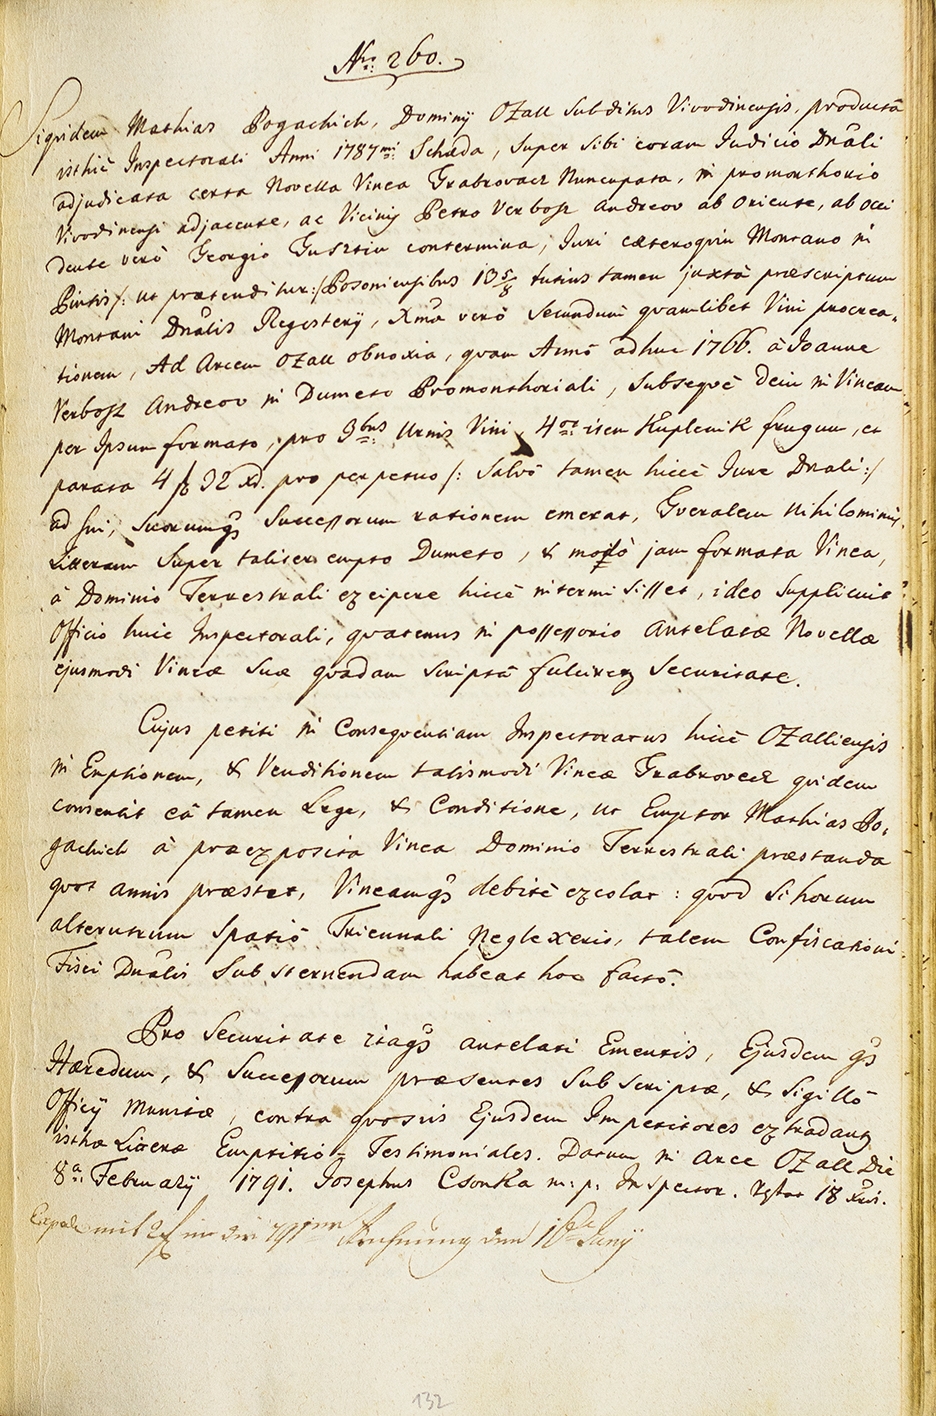 Nro: 260.
Siquidem Mathias Pogachich, Dominij Ozall Subditus Vivodinensis, productâ
isthic Inspectorali Anni 1787mi: Scheda, super sibi coram Judicio Dnăli
adjudicata certa Novella Vinea Grabrovacz Nuncupata, in promonthorio
Vivodinensi adjacente, ac Vicinis Petro Verbosz Andreov ab oriente, ab occi
dente verò Georgio Gusztin contermina, Juri cæteroquin Montano in
Pintis /: ut prætenditur :/ Posoniensibus 13 5/8 tutius tamen juxtà præscriptum
Montani Dnălis Regesterij, Xmâ verò secundum quamlibet Vini procrea„
tionem, Ad Arcem Ozall obnoxia, quam Annô adhuc 1766. à Joanne
Verbosz Andreov in Dumeto Promonthoriali, subseqvè dein in Vineam
per Ipsum formato, pro 3bus Urnis Vini, 4or: item Kuplenik frugum, et
parata 4 f 32 xd. pro perpetuo /: Salvô tamen hicce Jure Dnăli :/
ad sui, suorumq̃ Successorum rationem emerat, Gveralem nihilominus
Litteram super taliter empto Dumeto, & modò jam formata Vinea,
à Dominio Terrestrali excipere hiccè intermisisset, ideo supplicuit
Officio huic Inspectorali, quatenus in possessorio Antelatæ Novellæ
ejusmodi Vineæ suæ quadam scriptâ fulciretur securitate.
Cujus petiti in Conseqventiam Inspectoratus hiccè Ozalliensis
in Emptionem, & Venditionem talismodi Vineæ Grabrovecz quidem
consentit eâ tamen Lege, & Conditione, ut Emptor Mathias Po„
gachich à præexposita Vinea Dominio Terrestrali præstanda
quot annis præstet, Vineamq̃ debitè excolat: quod si horum
alterutrum spatiô Triennali Neglexerit, talem Confiscationi
Fisci Dnălis substernendam habeat hoc factô.
Pro Securitate itaq̃ antelati Ementis, Ejusdem q̃
Hæredum, & Successorum præsentes subscriptæ, & Sigillô
Officij munitæ, contra quosvis Ejusdem Impetitores extradantur
isthæ Litteræ Emptitio = Testimoniales. Datum in Arce Ozall Die
8a: Februarij 1791. Josephus Csonka m: p: Inspector.
mit 2 f in die 791 Rechnung den Junij
132